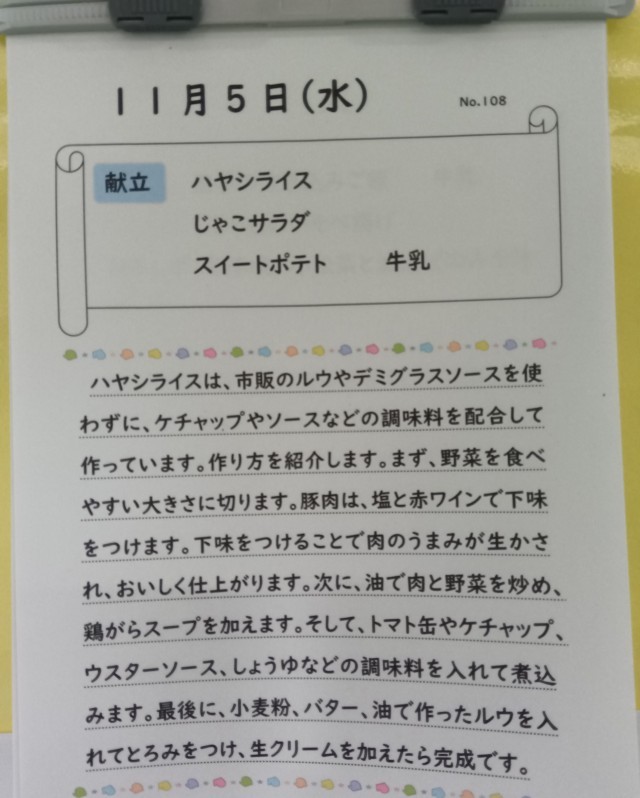 11月5日(水) No.108
献立 ハヤシライス
じゃこサラダ
スイートポテト 牛乳
ハヤシライスは、市販のルウやデミグラスソースを使
わずに、ケチャップやソースなどの調味料を配合して
作っています。作り方を紹介します。まず、野菜を食べ
やすい大きさに切ります。豚肉は、塩と赤ワインで下味
をつけます。下味をつけることで肉のうまみが生かさ
れ、おいしく仕上がります。次に、油で肉と野菜を炒め、
鶏がらスープを加えます。そして、トマト缶やケチャップ、
ウスターソース、しょうゆなどの調味料を入れて煮込
みます。最後に、小麦粉、バター、油で作ったルウを入
れてとろみをつけ、生クリームを加えたら完成です。